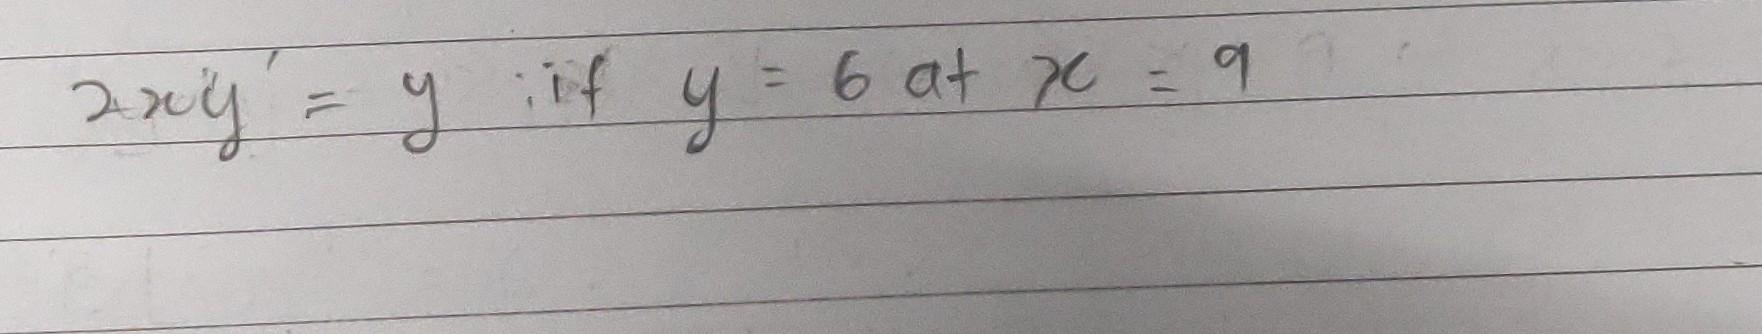 2xy' = y ; if y = 6 at x = 9